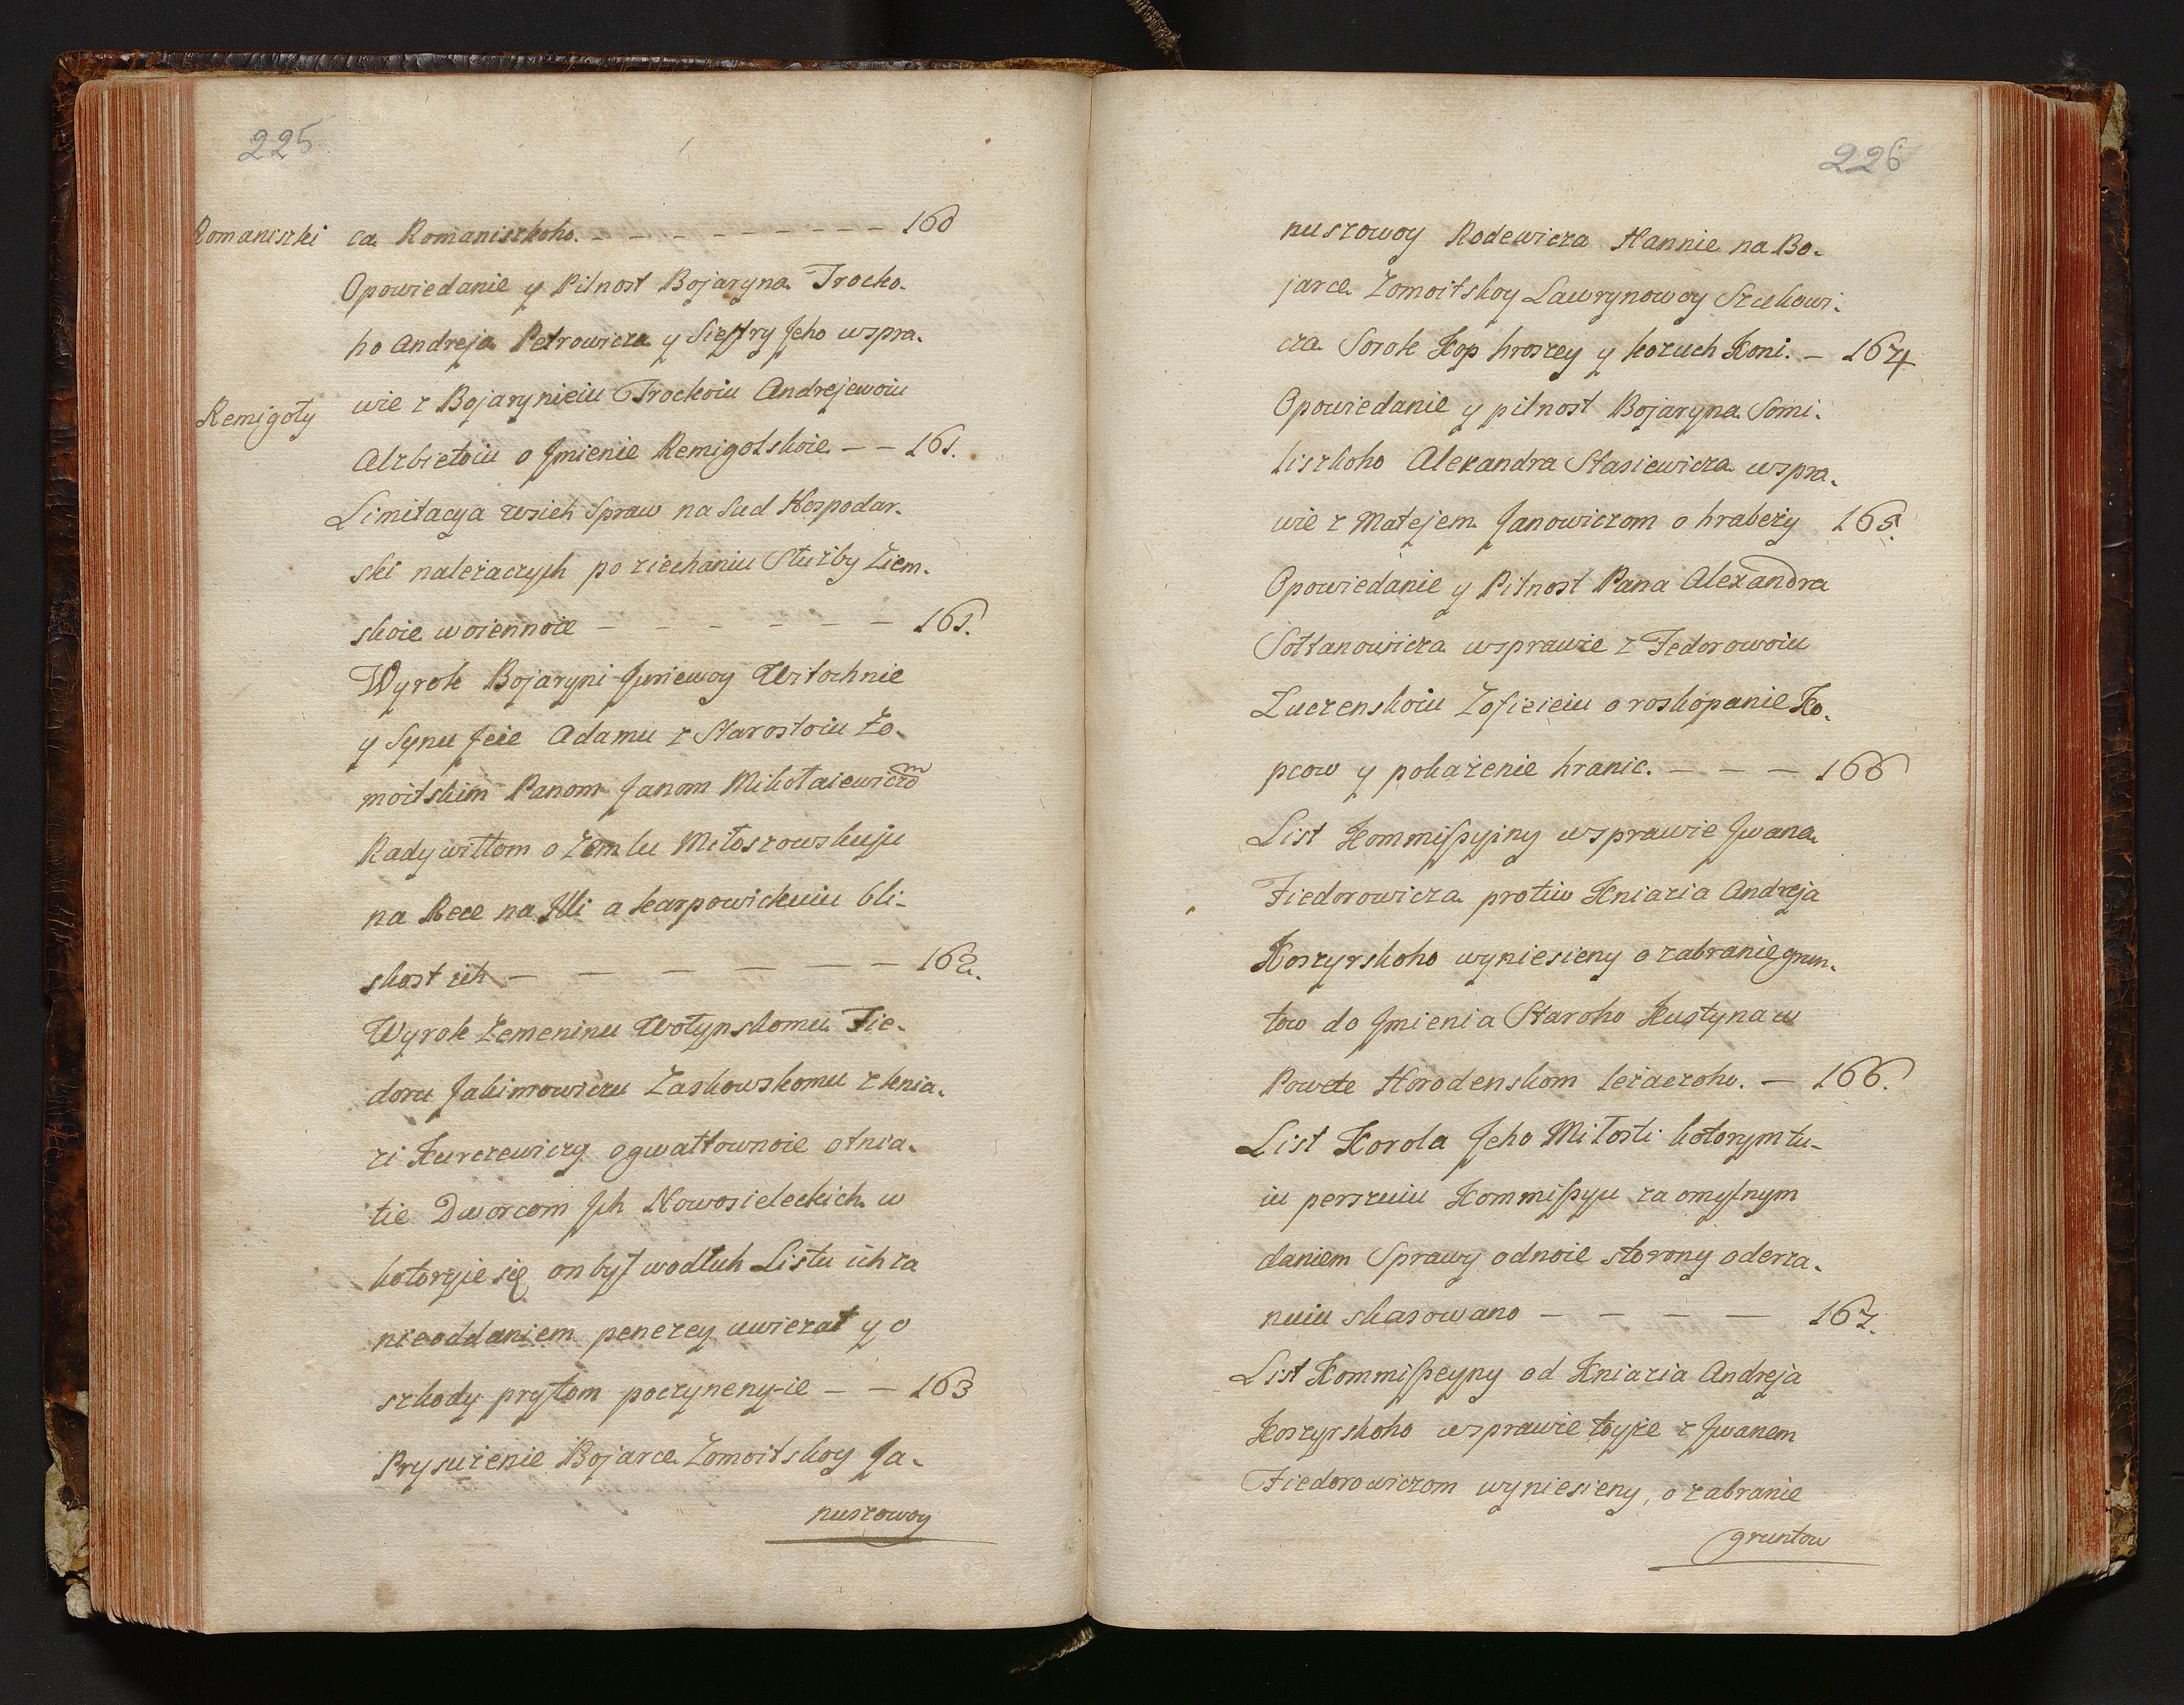 225
Romaniszki
ca Romaniszkoho. — — — — — — — — 160
Opowiedanie y Pilnost Bojaryna Trocko-
ho Andreja Petrowicza y Siestry Jeho wspra-
Remigoły
wie z Bojarynieiu Trockoiu Andrejewoiu
Alzbietoiu o Jmienie Remigolskoie — — 161.
Limitacya wsich Spraw na Sud Hospodar-
ski należaczych po ziechaniu Służby Ziem-
skoie woiennoie — — — — — — 161.
Wyrok Bojaryni Juriewoy Witochnie
y Synu Jeie Adamu z Starostoiu Żo-
moitskim Panom Janom Mikołaiewiczom
Radywiłłom o Zemlu Miłoszowskuju
na Rece na Jlli a karpowickuiu bli-
skost ich — — — — — — 162.
Wyrok Zemeninu Wołynskomu Fie-
doru Jakimowiczu Zaskowskomu z knia-
zi Kurczewiczy o gwałtownoie otnia-
tie Dworcom Jch Nowosieleckich w
kotoryie się on był wodłuh Listu ich za
nieoddaniem penezey uwiezał y o
szkody prytom poczyneny-ie — — 163
Prysużenie Bojarce Zomoitskoy Ja-
nuszowoy
226
nuszowoy Rodewicza Hannie na Bo-
jarce Zomoitskoy Lawrynowoy Szukowi-
cza Sorok Kop hroszey y kozuch Koni. — 164
Opowiedanie y pilnost Bojaryna Somi-
liszkoho Alexandra Stasiewicza wspra-
wie z Matejem Janowiczom o hrabeży 165.
Opowiedanie y Pilnost Pana Alexandra
Sołtanowicza wsprawie z Fedorowoiu
Zuczenskoiu Zofieieiu o roskopanie Ko-
pcow y pokażenie hranic. — — — 166
List Kommissyjny wsprawie Jwana
Fiedorowicza protiw Kniazia Andreja
Koszyrskoho wyniesieny o zabranie grun-
tow do Jmienia Staroho Kustyna w
Powete Horodenskom leżaczoho. — 166.
List Korola Jeho Miłosti kotorym tu-
iu perszuiu Kommissyu za omylnym
daniem Sprawy odnoie storony oderza-
nuiu skasowano — — — — 167.
List Kommisseyny od Kniazia Andreja
Koszyrskoho wsprawie toyże z Jwanem
Fiedorowiczom wyniesieny, o zabranie
gruntow